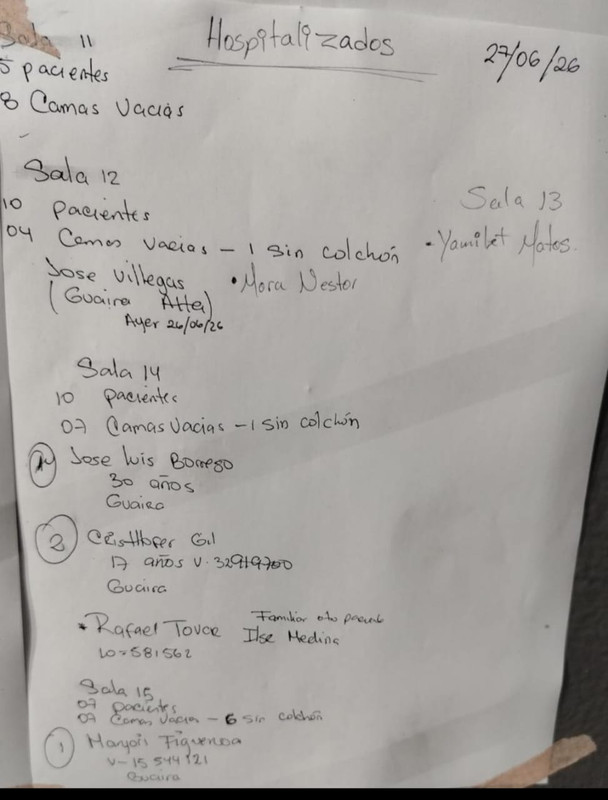 Hospitalizados
27/06/26
Sala 11
5 pacientes
8 Camas Vacias
Sala 12
10 pacientes
04 Camas vacias - 1 sin colchón
Jose Villegas
(Guaira)
Ayer 26/06/26
• Mora Nestor
Sala 13
• Yamilet Matos
Sala 14
10 pacientes
07 Camas Vacias - 1 sin colchón
Jose Luis Borrego
30 años
Guaira
2 Cristhofer Gil
17 años V. 32919700
Guaira
• Rafael Tovar
10.581562
Familiar
Ilse Medina
Sala 15
07 pacientes
07 Camas Vacias - 6 sin colchón
1 Figueroa
V-15 544121
Guaira